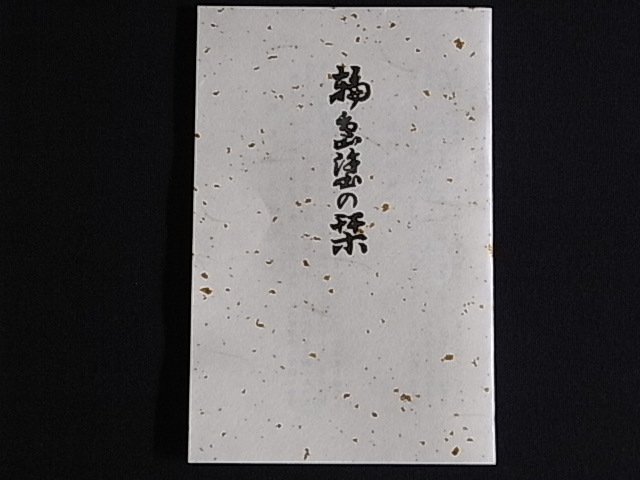 輪島塗の栞